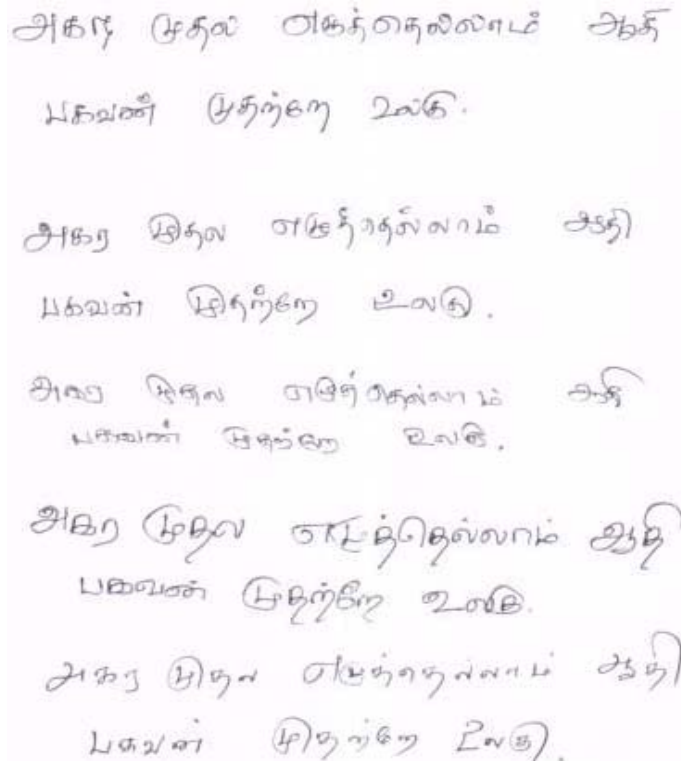 அகர முதல எழுத்தெல்லாம் ஆதி
பகவன் முதற்றே உலகு.
அகர முதல எழுத்தெல்லாம் ஆதி
பகவன் முதற்றே உலகு.
அகர முதல எழுத்தெல்லாம் ஆதி
பகவன் முதற்றே உலகு.
அகர முதல எழுத்தெல்லாம் ஆதி
பகவன் முதற்றே உலகு.
அகர முதல எழுத்தெல்லாம் ஆதி
பகவன் முதற்றே உலகு.